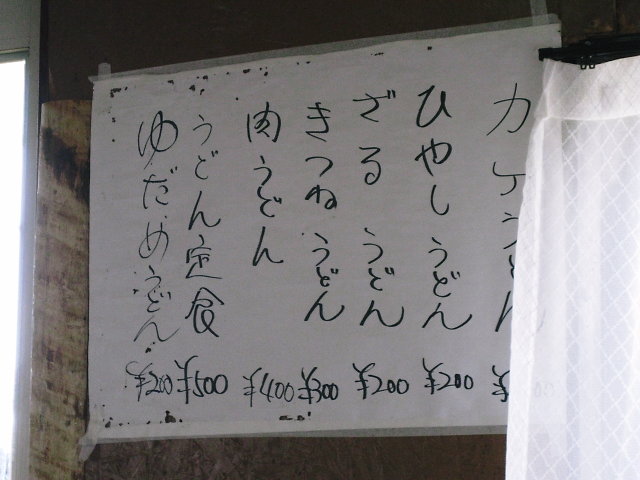 カケうどん
ひやしうどん ¥200
ざるうどん ¥200
きつねうどん ¥300
肉うどん ¥400
うどん定食 ¥500
ゆだめうどん ¥200